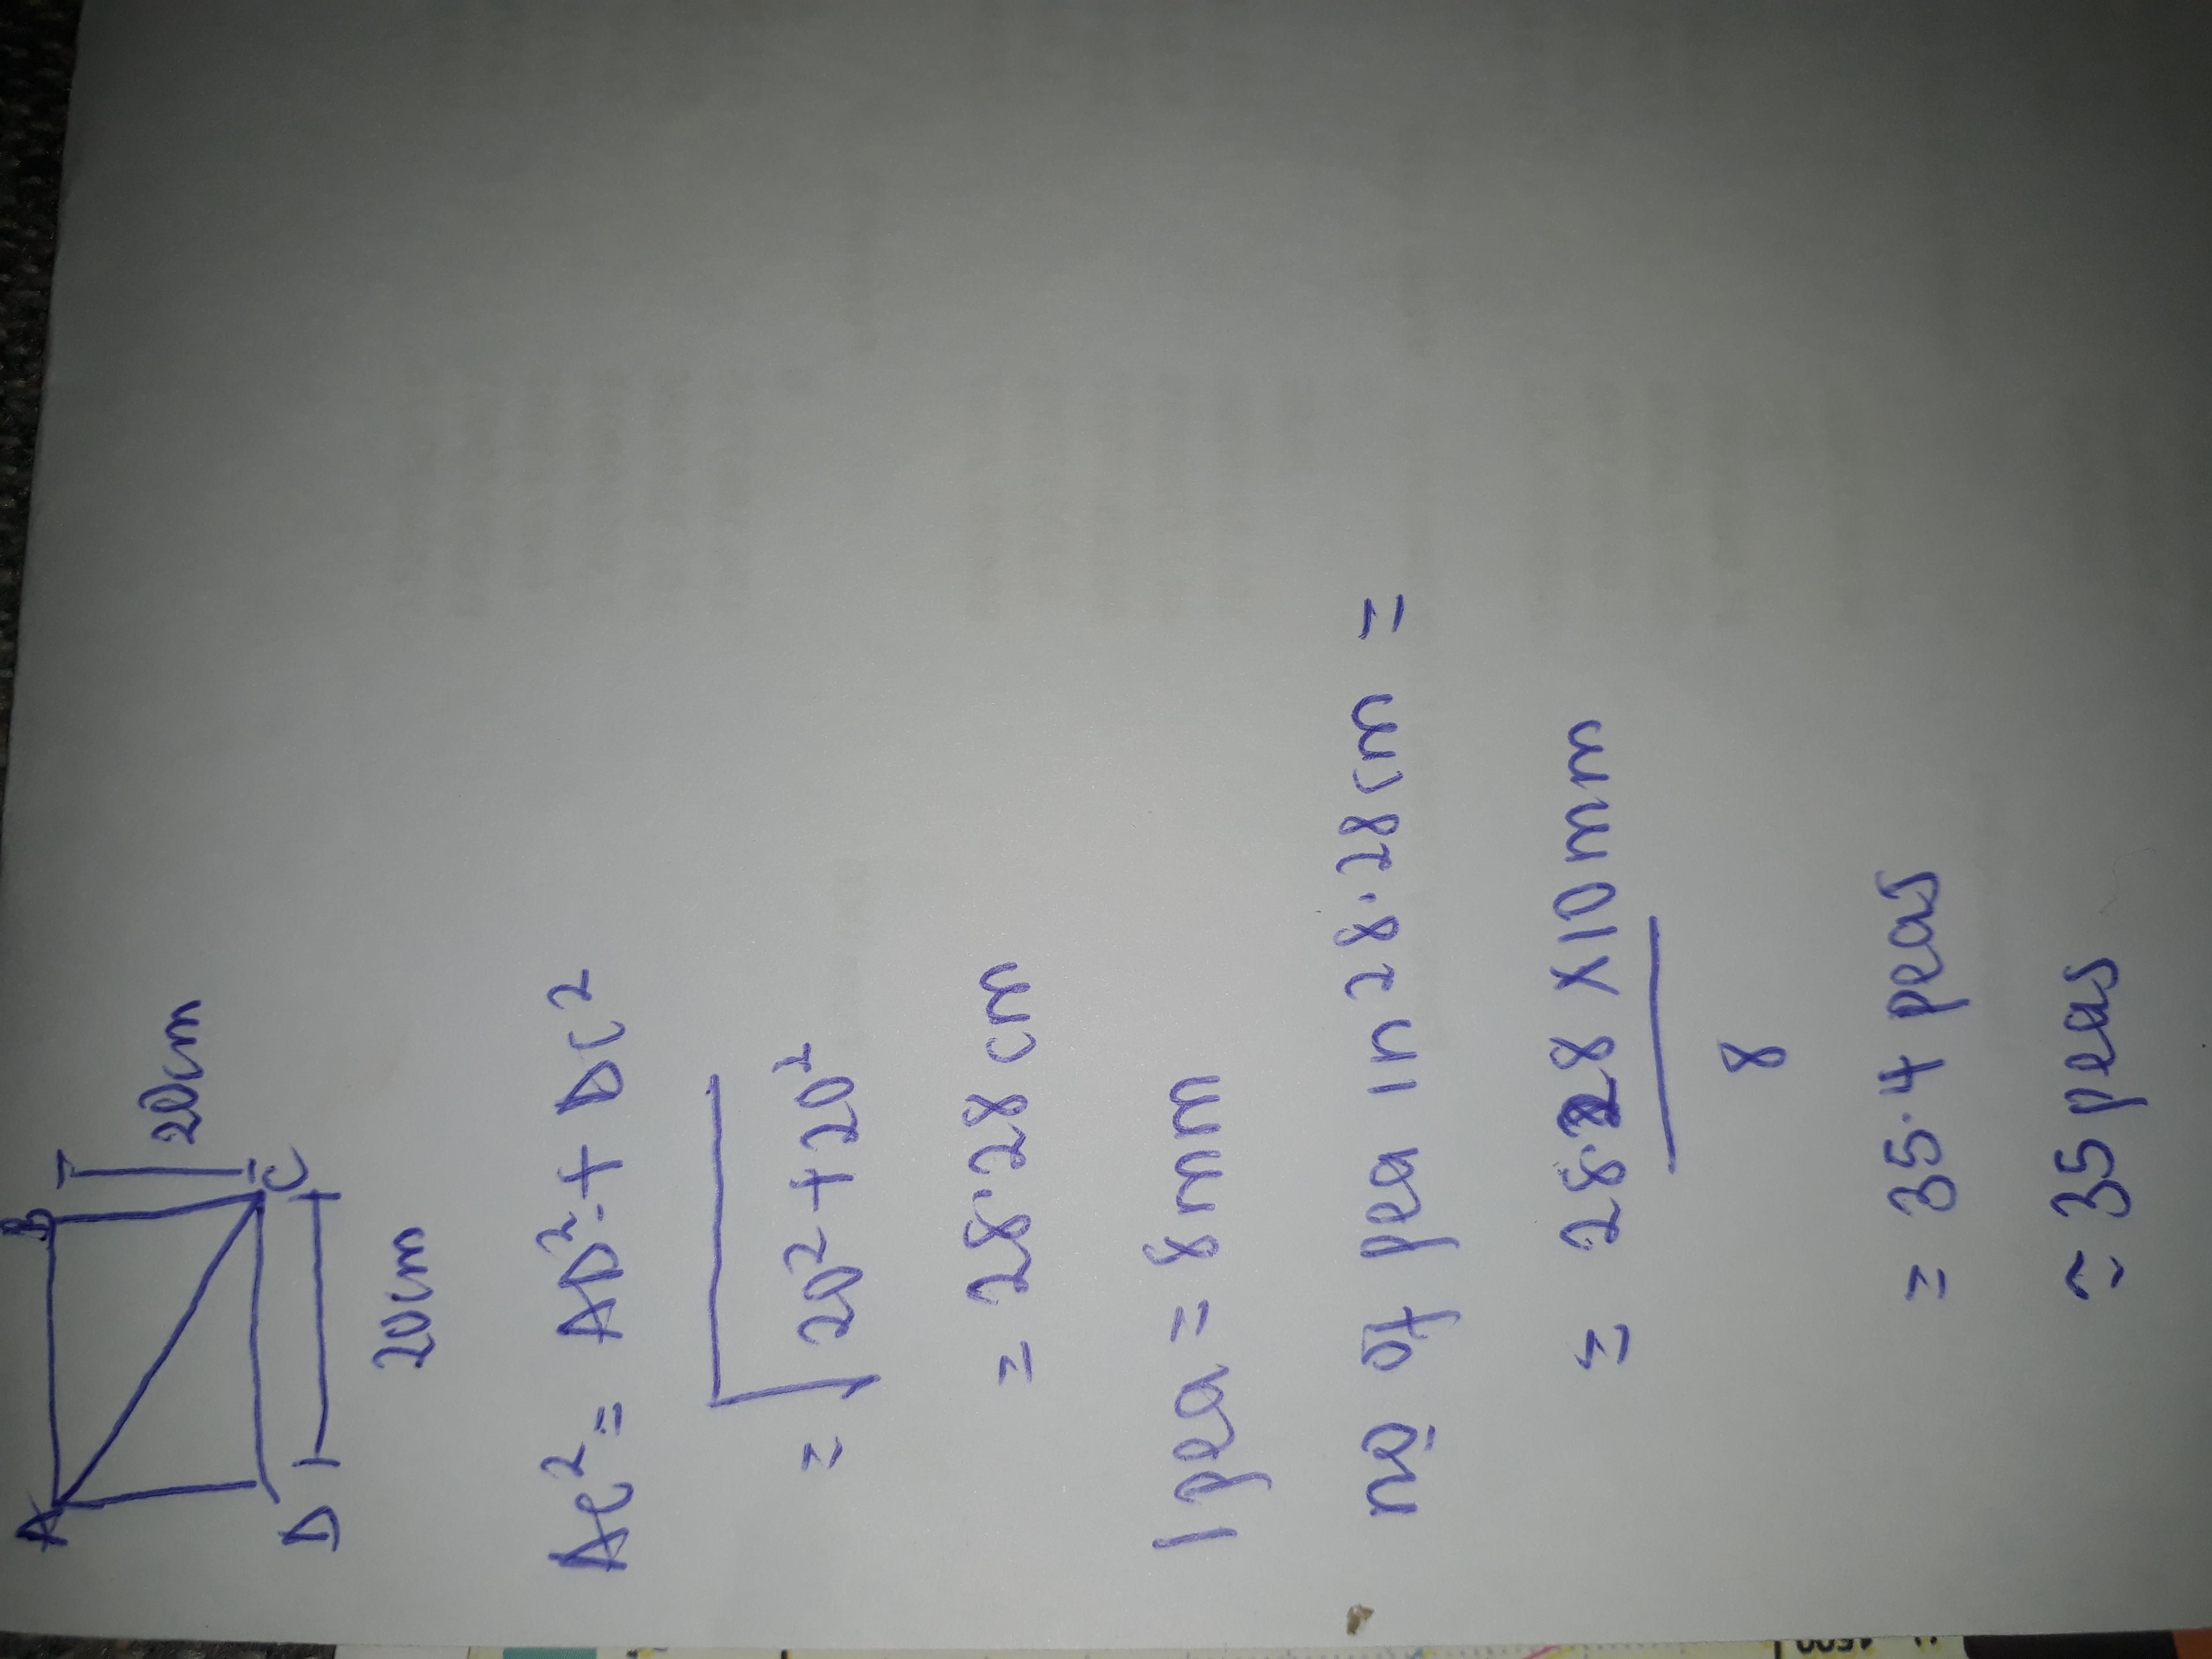 A B
20cm
D C
20cm
AC² = AD² + DC²
= √20² + 20²
= 28.28 cm
1 pea = 8mm
no of pea in 28.28cm =
= 28.28 X 10 mm
8
= 35.4 peas
≃ 35 peas
1500